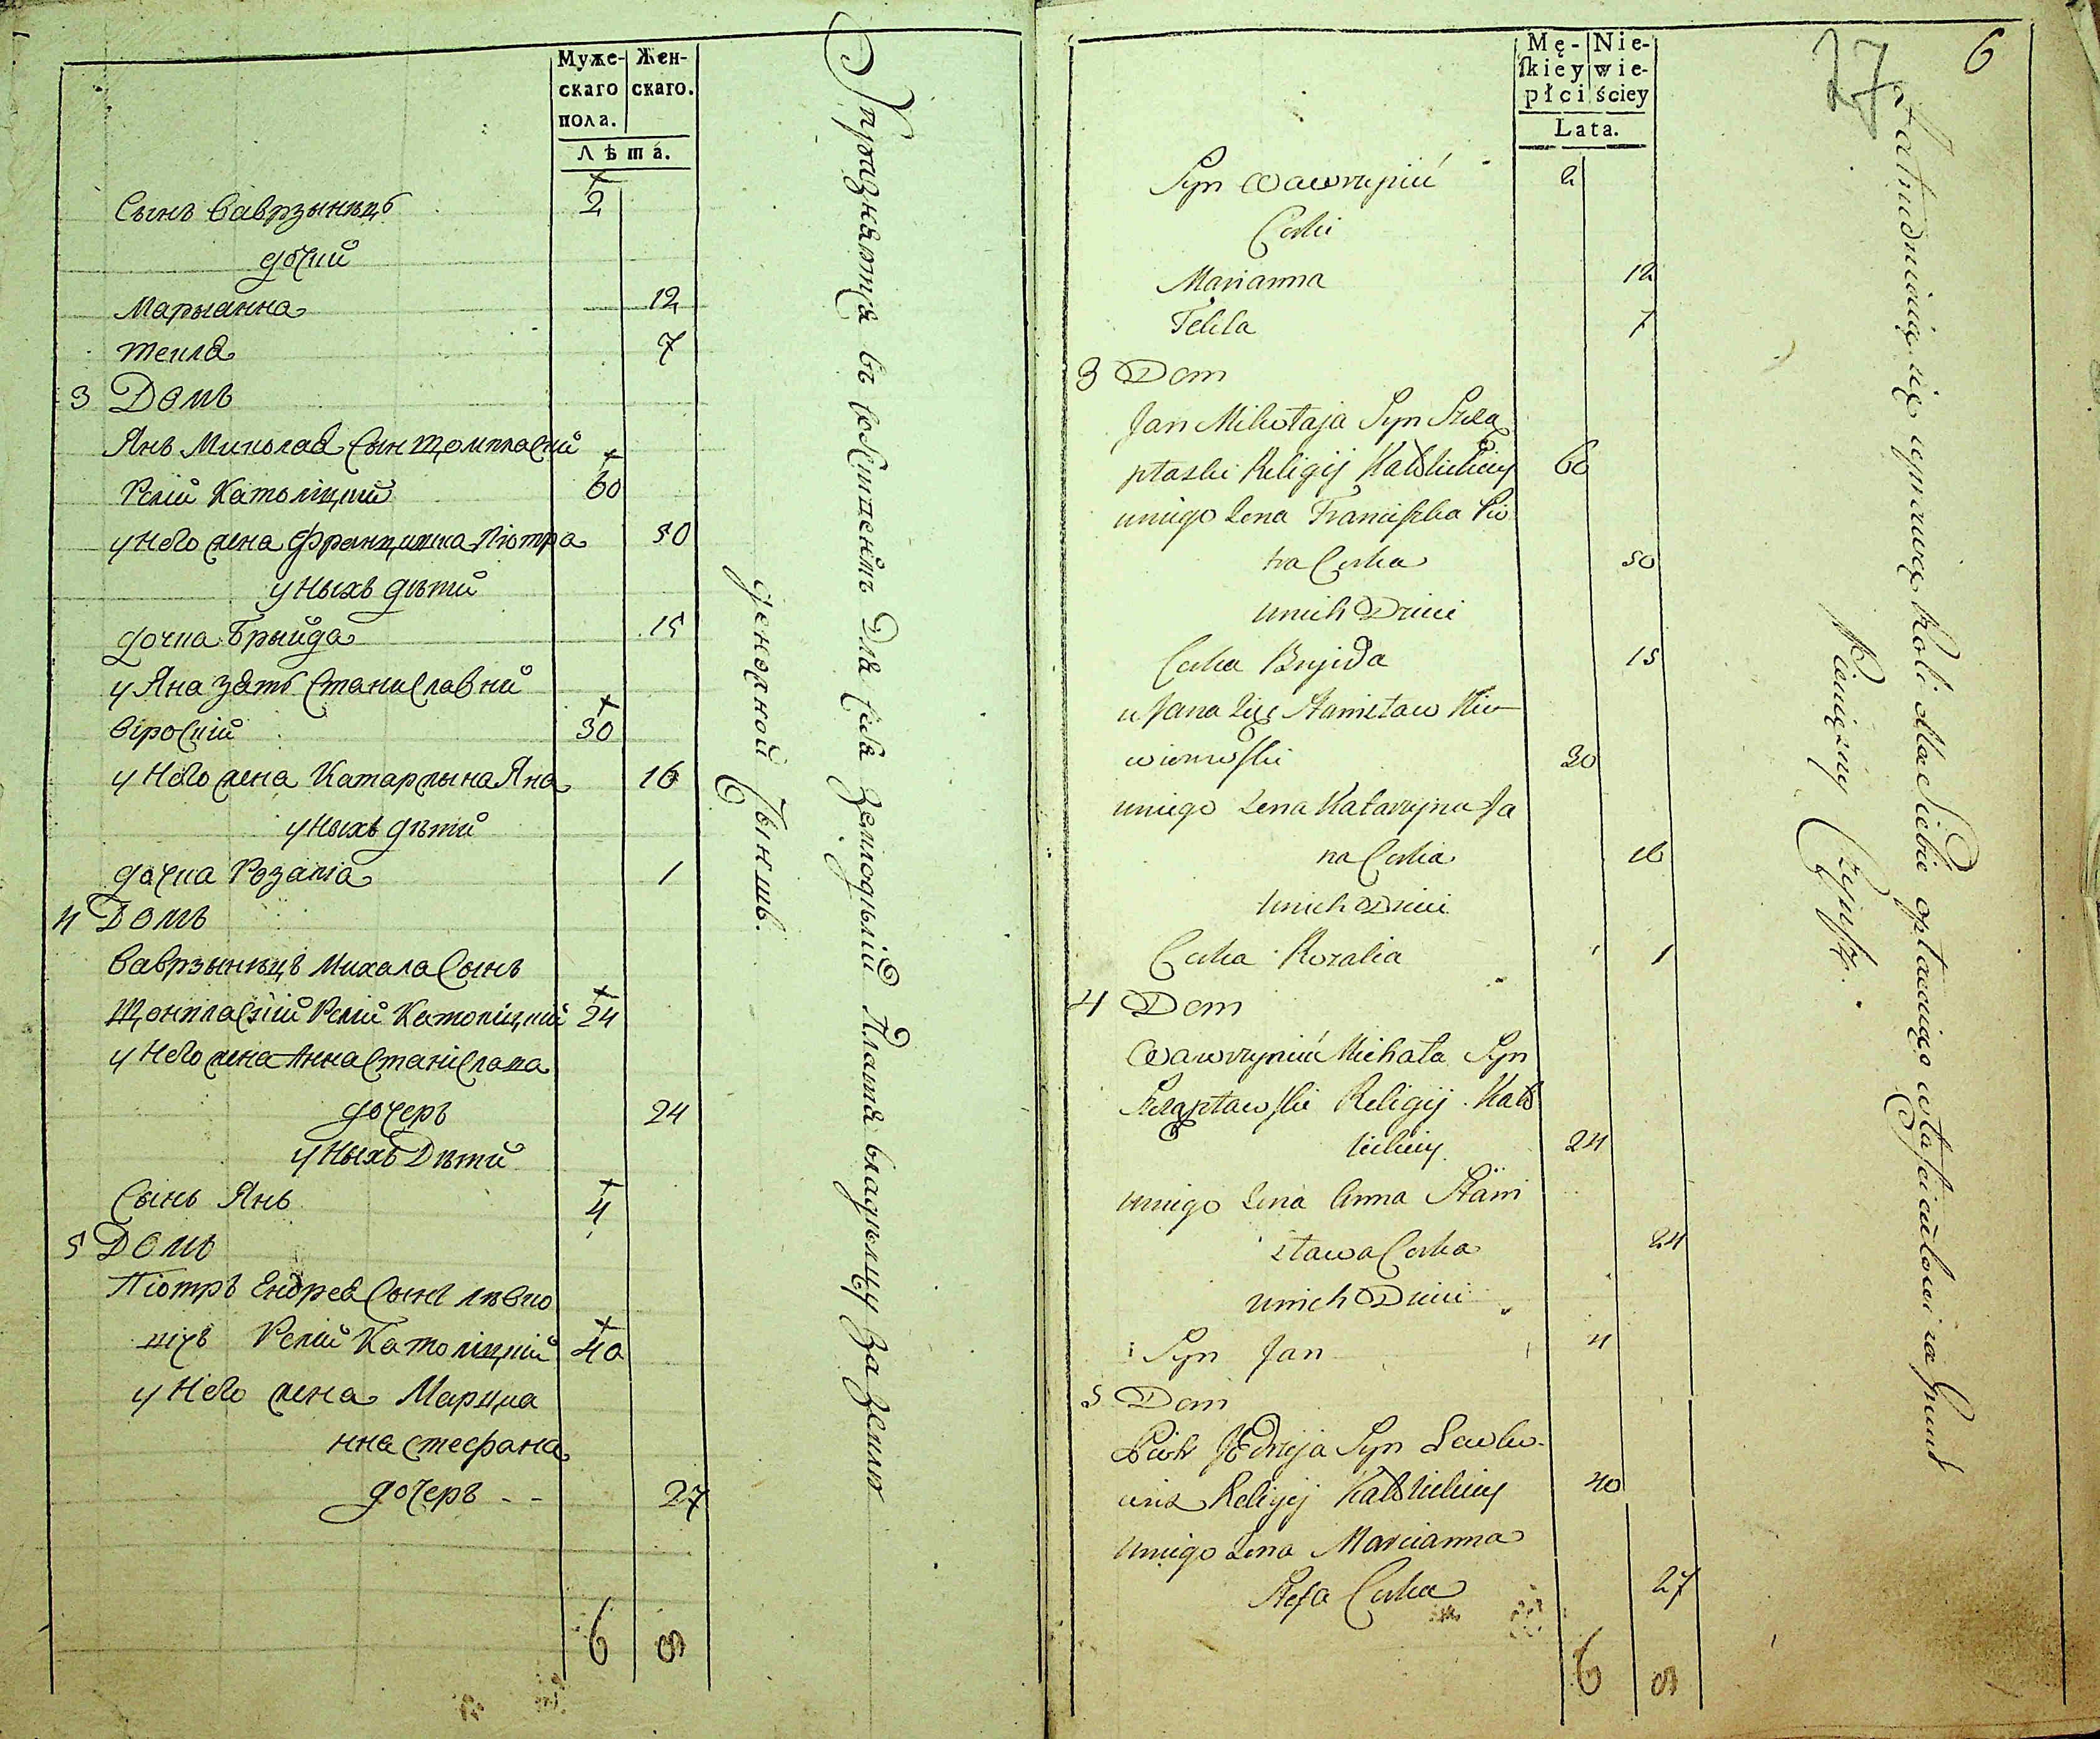 Муже-
скаго
пола.
Жен-
скаго.
Лѣта.
Сынъ Ваврзынецъ 2
дочки
Марыанна 12
Текла 7
3 Домъ
Янъ Миколая Сын
Релии Католицкий 60
у Него жена Францишка Піотра 50
у Ныхъ дѣти
дочка Брыйда 15
у Яна зять Станислав Ки
віровскій 30
у Него жена Катаржына Яна 16
у Ныхъ дѣти
дочка Розалія 1
4 Домъ
Ваврзынецъ Михала Сынъ
Релии Католицкий 24
у Него жена Анна Станіслава
дочеръ 24
у Ныхъ Дѣти
Сынъ Янъ 4
5 Домъ
Піотръ Ендрея Сынъ Левко
Релии Католицкий 40
у Него жена Марцыа
нна Стефана
дочеръ - - 27
6 8
Упражняются въ для себя Платя владѣльцу За Землю
Денежной Чыншъ.
Mę-
skiey
płci
Nie-
wie-
ściey
Lata.
27
6
Syn Wawrzyniec 2
Corki
Marianna 12
Tekla 7
3 Dom
Jan Mikołaja Syn Szczą
ptaski Religij Katolickiey 60
uniego Zona Franciszka Pio
tra Corka 50
unich Dzieci
Corka Bryjda 15
u Jana Zięć Stanisław Kiw
wierowski 30
uniego Zona Katarzyna Ja
na Corka 16
unich Dzieci
Corka Rozalia 1
4 Dom
Wawrzyniec Michała Syn
Religij Kato
lickiey 24
uniego Zona Anna Stani
sława Corka 24
unich Dzieci
Syn Jan 4
5 Dom
Piotr Jędrzeja Syn Lewko-
wicz Religij Katolickiey 40
uniego Zona Marcianna
Stefa Corka 27
6 8
Zatrudniaią się uprawą Roli dla Siebie opłacaiąc właścicielowi za Grunt
Pieniężny Czynsz.